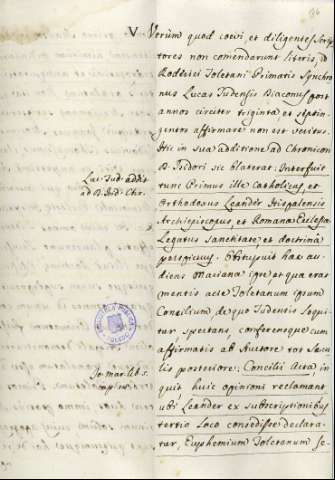 V. Verùm quod coevi, et diligentes Scrip
tores non comendarunt literis, id
Roderici Toletani Primatis Synchro
nus Lucas Tudensis Diaconus post
annos circiter triginta et septin-
gentos affirmare non est veritus.
Hic in sua additione ad Chronicon
B. Isidori sic blaterat: Interfuit
tunc Primus ille Catholicus, et
Orthodoxus Leander Hispalensis
Archiepiscopus, et Romanæ Ecclesiæ
Legatus sanctitate, et doctrina
perspicuus. Obstupuit hæc au-
diens Mariana ipse, et qua erat
mentis acie Toletanum ipsum
Concilium de quo Tudensis loqui
tur spectans, conferensque cum
affirmatis ab Auctore tot sæcu
lis posteriore: Concilii Acta, in
quit huic opinioni reclamant
ubi Leander ex subscriptionibus
tertio loco consedisse declara-
tur, Euphemium Toletanum se-
Luc. Tud. addit.
ad B. Isid. Chr.
Jo. Mar. lib. 5.